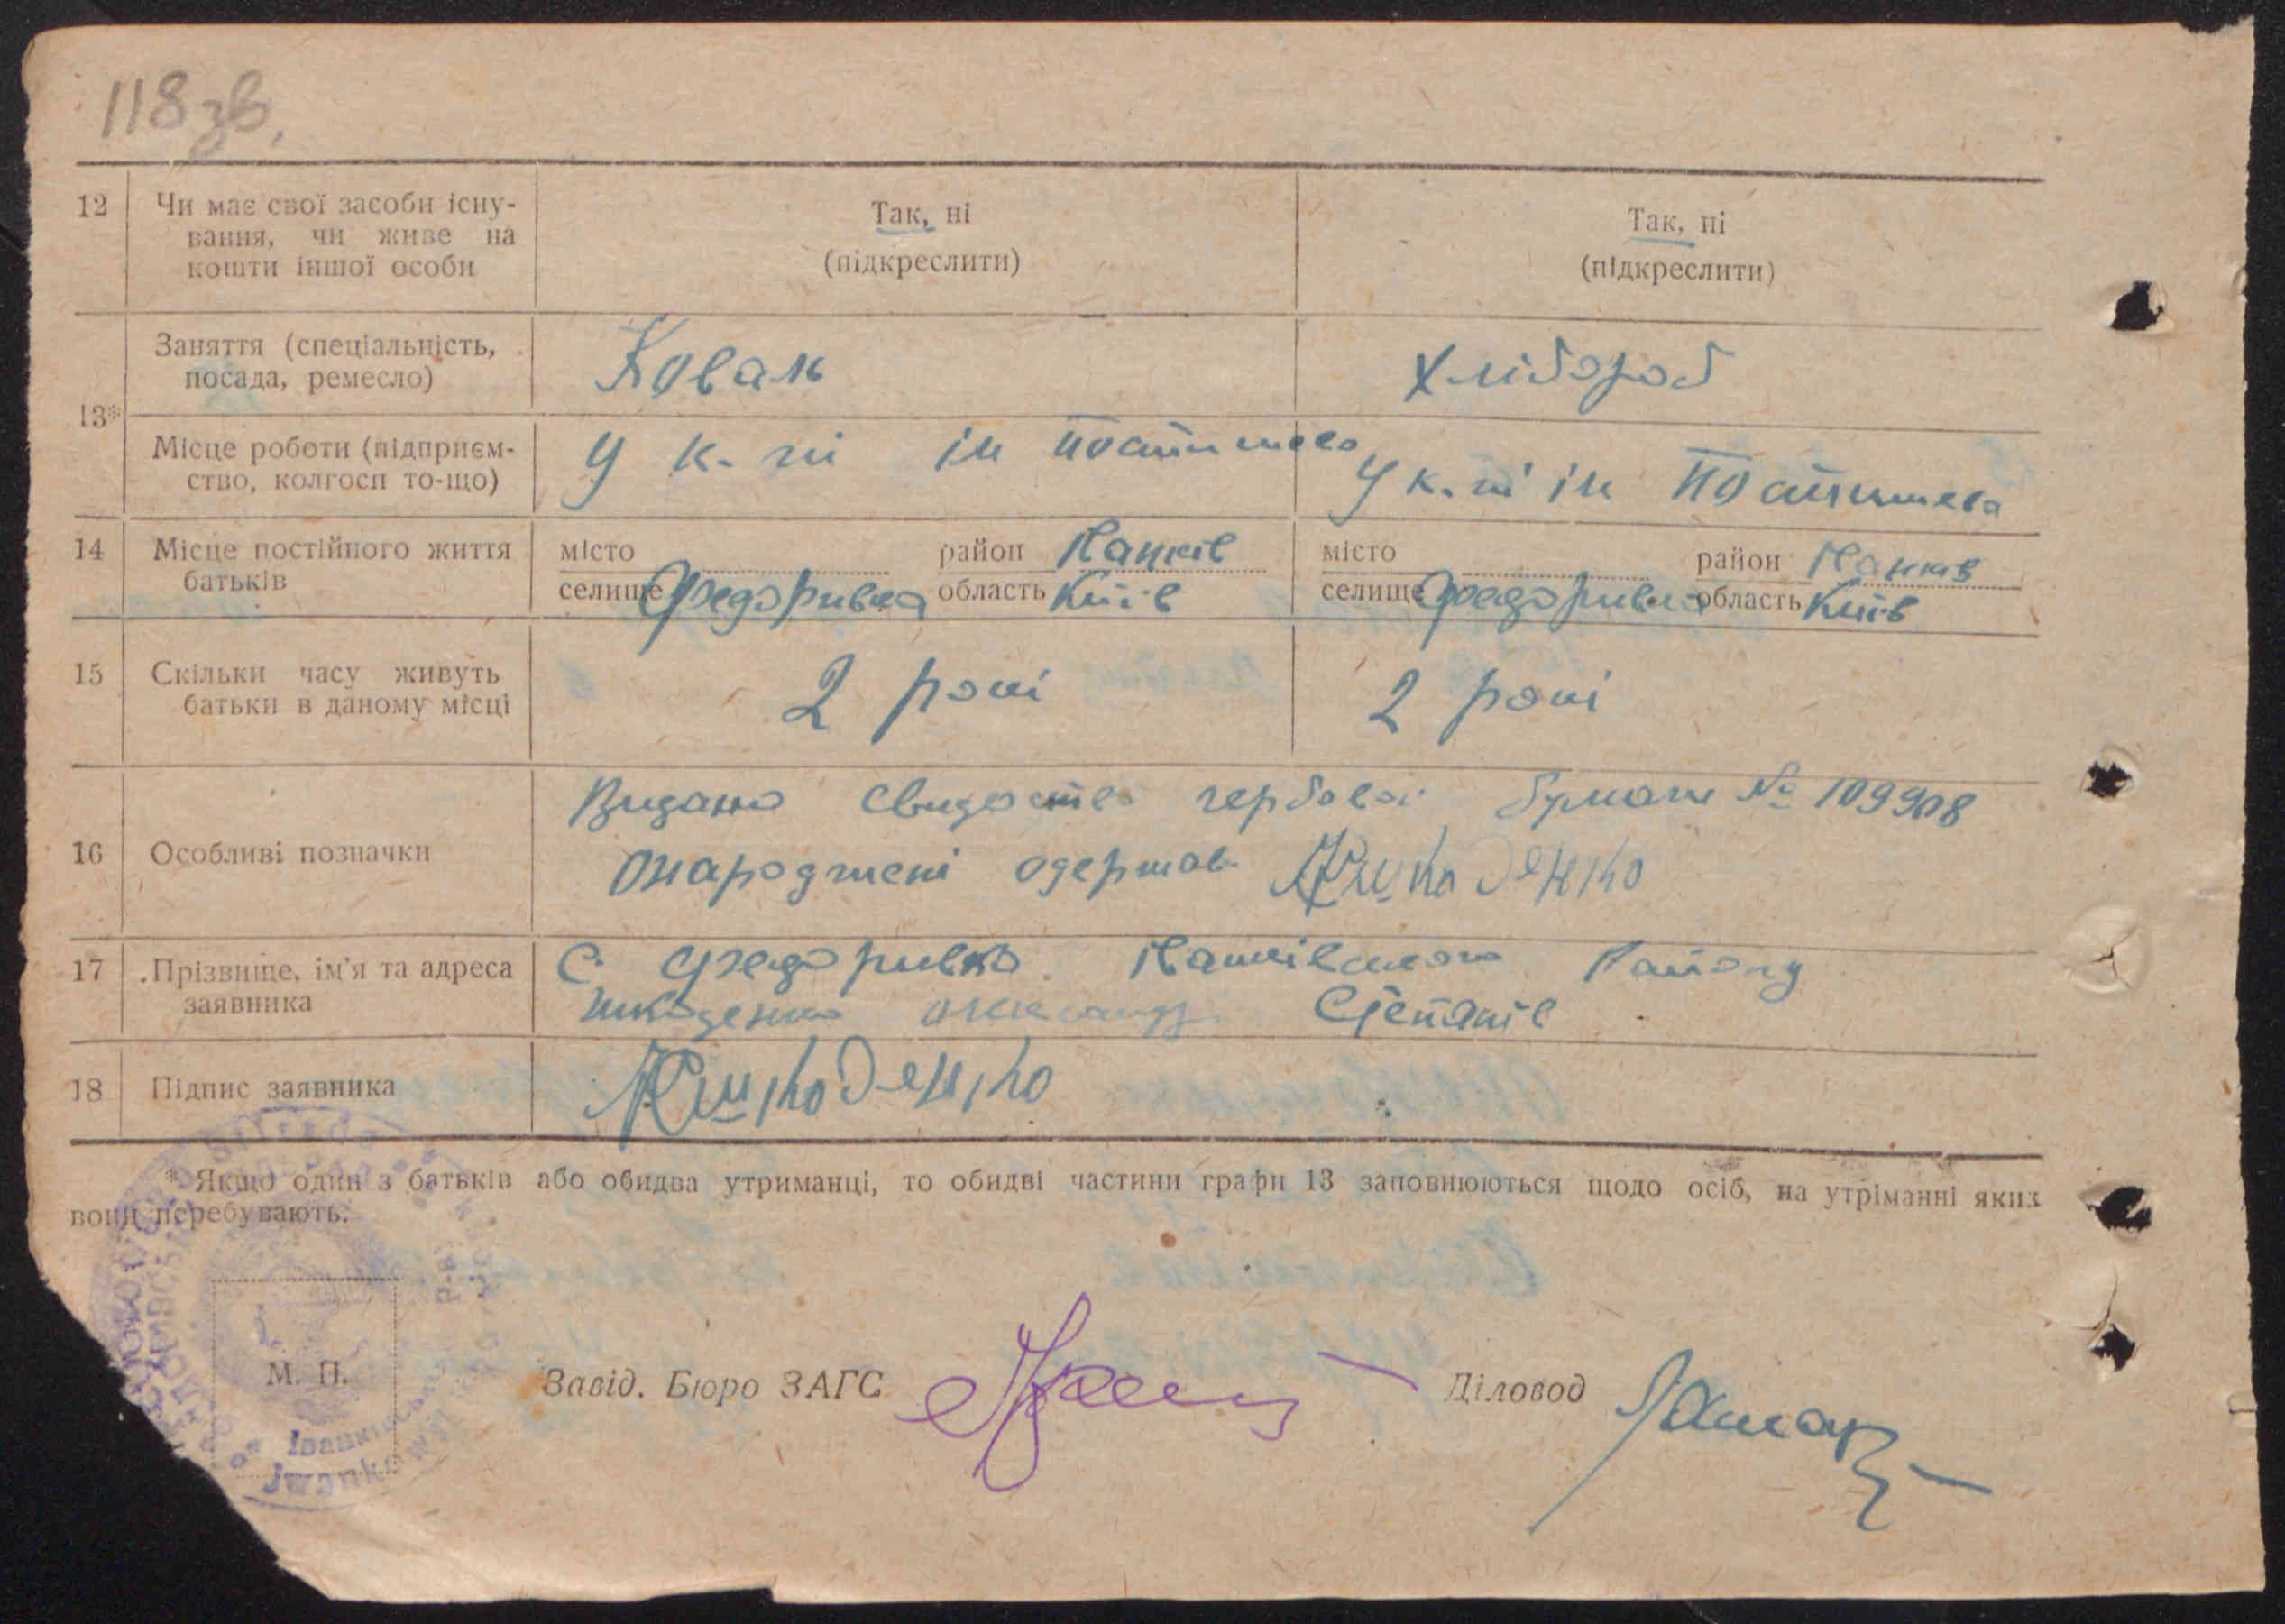 118 зв.
12 Чи має свої засоби існу-
вання, чи живе на
кошти іншої особи
Так, ні
(підкреслити)
Так, ні
(підкреслити)
13*
Заняття (спеціальність,
посада, ремесло)
Коваль
Хлібороб
Місце роботи (підприєм-
ство, колгосп то-що)
У к.-пі ім Постишева
У к.-пі ім Постишева
14 Місце постійного життя
батьків
місто район
селище Федорівка область Київ
місто район
селище Федорівка область Київ
15 Скільки часу живуть
батьки в даному місці
2 рокі
2 рокі
16 Особливі позначки
Видано свидоство гербової бумаги № 109908
о народжені одержав
17 Прізвище, ім'я та адреса
заявника
С. Федорівка району
Шкоденко Олександр Степанів
18 Підпис заявника
Шкоденко
* Якщо один з батьків або обидва утриманці, то обидві частини графи 13 заповнюються щодо осіб, на утріманні яких
вони перебувають.
М. П.
Завід. Бюро ЗАГС
Діловод